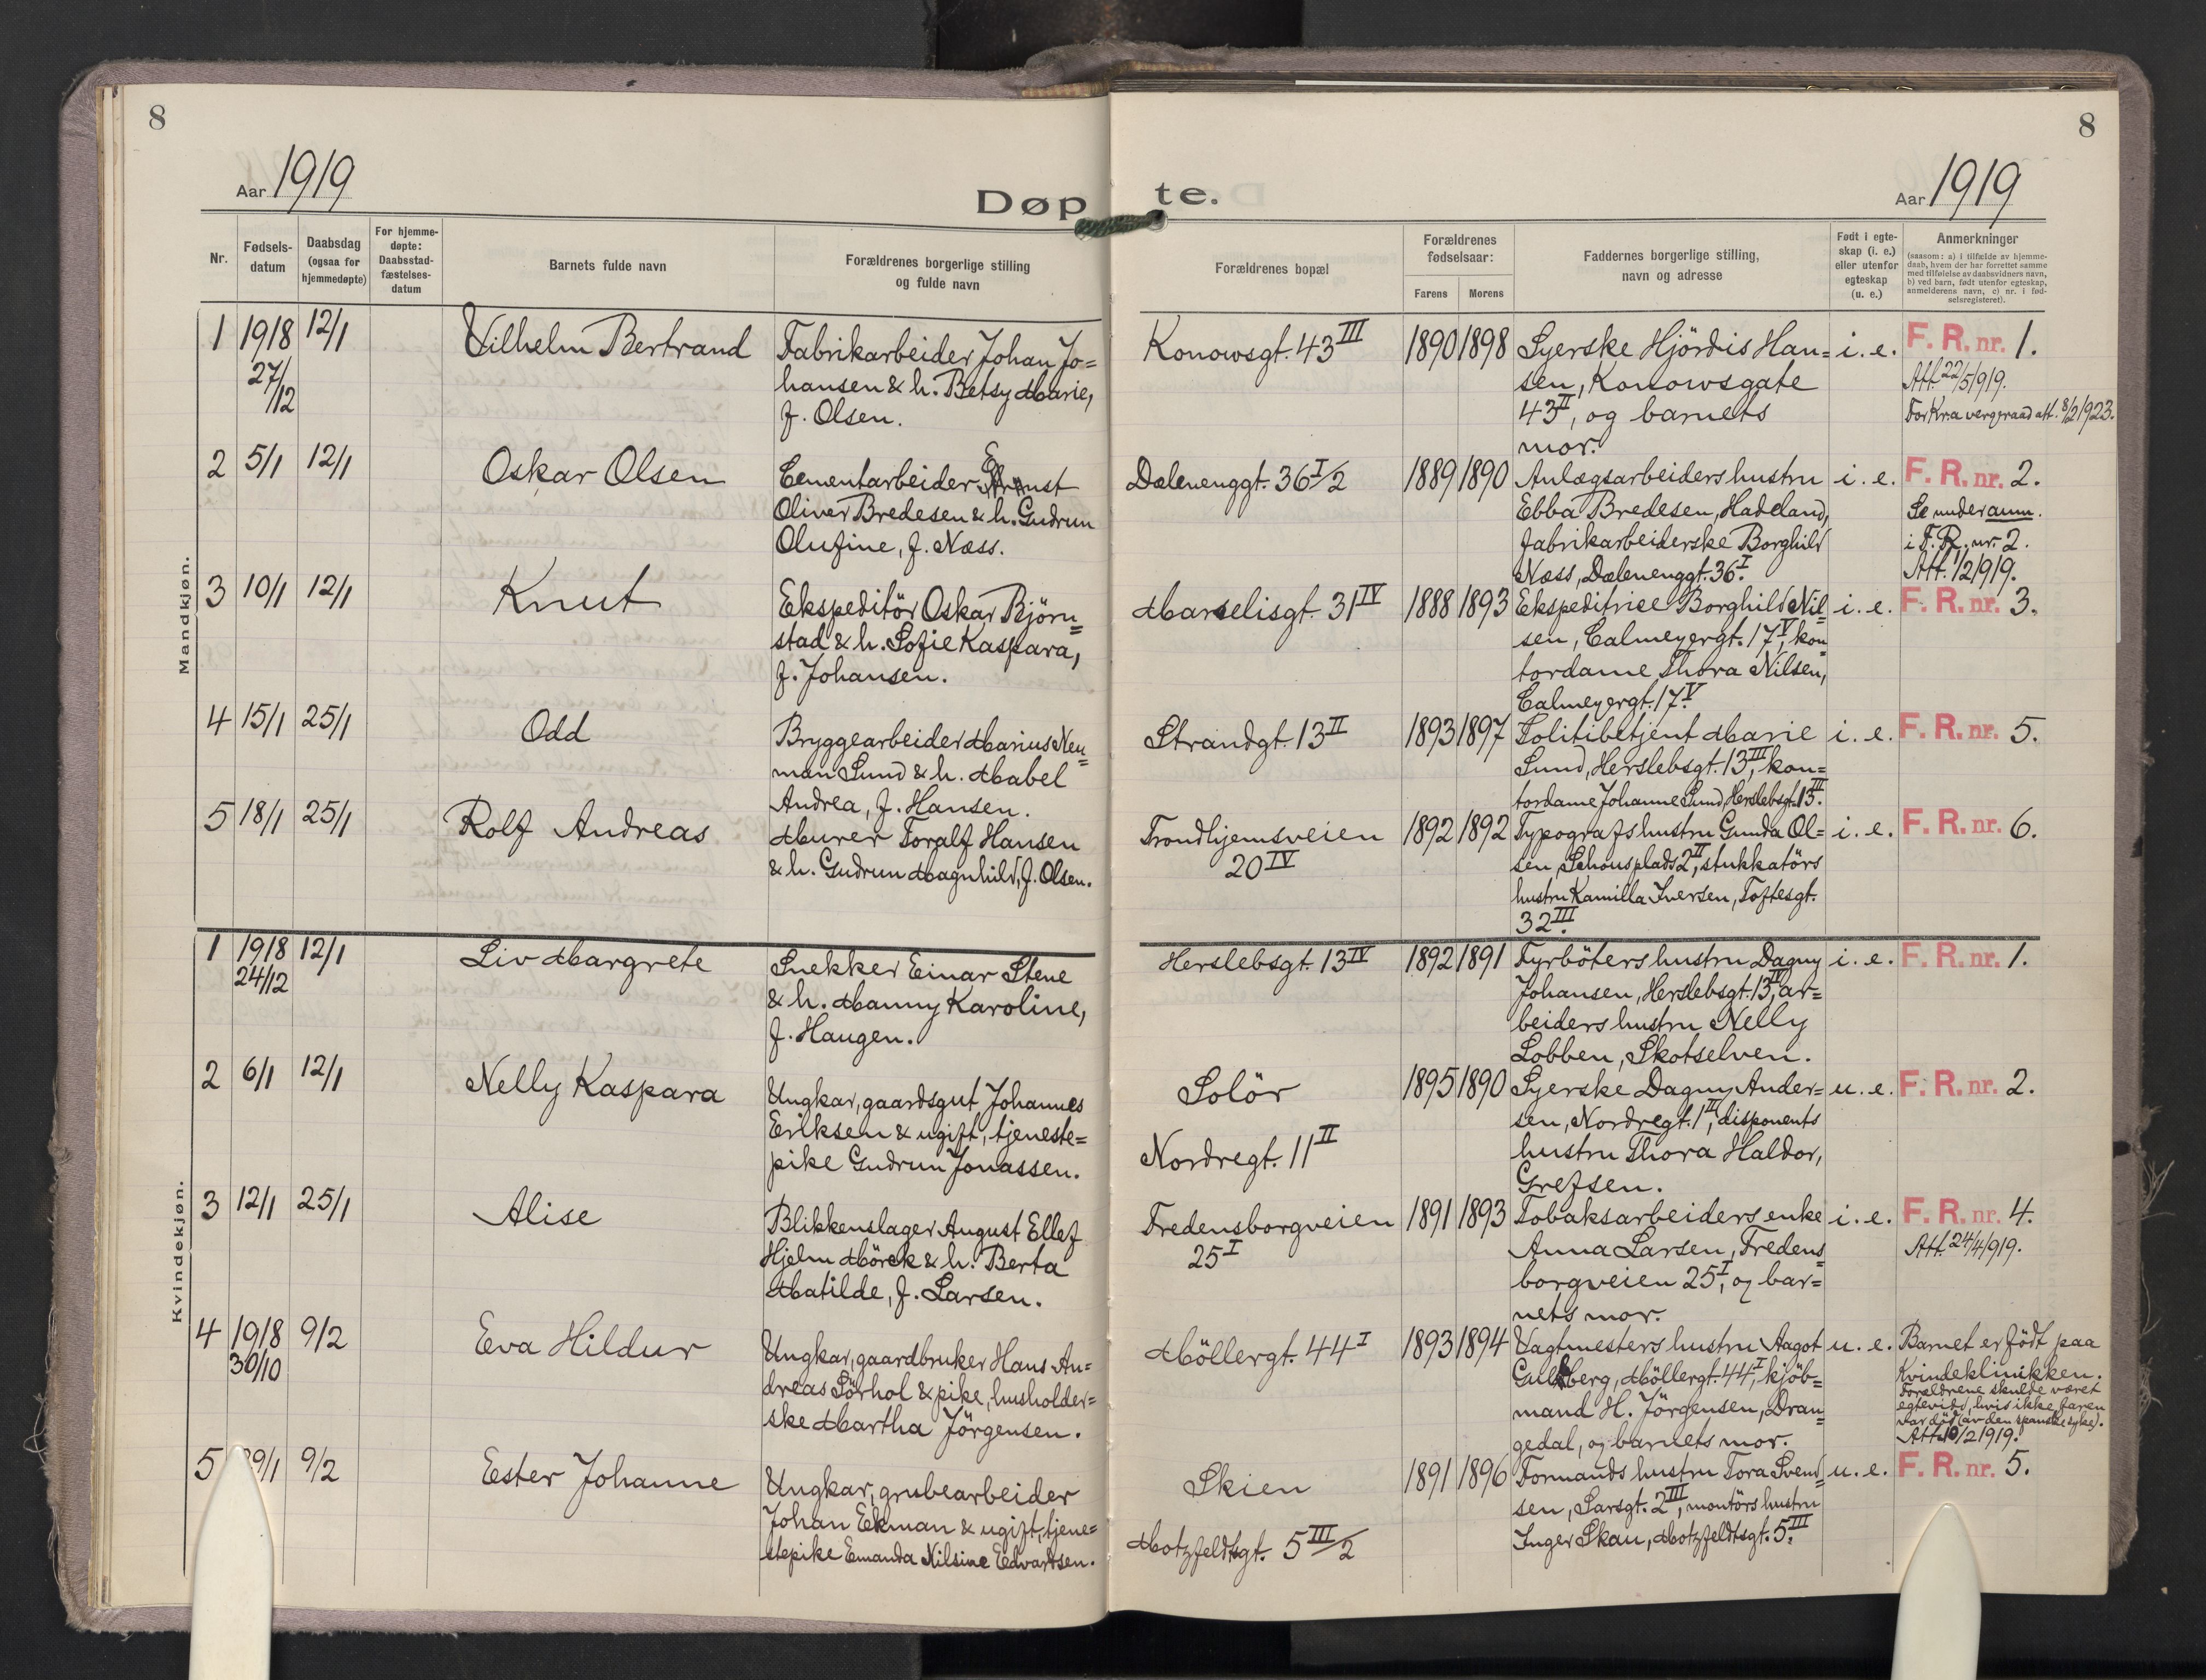 8
8
Aar 1919
Døpte.
Aar 1919
Nr.
Fødsels-
datum
Daabsdag
(ogsaa for
hjemmedøpte)
For hjemme-
døpte:
Daabsstad-
fæstelses-
datum
Barnets fulde navn
Forældrenes borgerlige stilling
og fulde navn
Forældrenes bopæl
Forældrenes
fødselsaar:
Farens
Morens
Faddernes borgerlige stilling,
navn og adresse
Født i egte-
skap (i. e.)
eller utenfor
egteskap
(u. e.)
Anmerkninger
(saasom: a) i tilfælde av hjemme-
daab, hvem der har forrettet samme
med tilføielse av daabsvidners navn,
b) ved barn, født utenfor egteskap,
anmelderens navn, c) nr. i fød-
selsregisteret).
Mandkjøn.
1 1918 27/12 12/1 Vilhelm Bertrand
Fabrikarbeider Johan Jo=
hansen & h. Betsy Marie,
f. Olsen.
Konowsgt. 43 III
1890 1898
Syerske Hjördis Han=
sen, Konowsgate
43 II, og barnets
mor.
i. e.
F. R. nr. 1.
Att. 22/5 1919.
For Kr.a vergeraad att. 8/2 1923.
2 5/1 12/1 Oskar Olsen
Cementarbeider Ernst
Oliver Bredesen & h. Gudrun
Olufine, f. Næss.
Dælenenggt. 36 I/2
1889 1890
Anlægsarbeiders hustru
Ebba Bredesen, Hadeland,
fabrikarbeiderske Borghild
Næss, Dælenenggt. 36 I.
i. e.
F. R. nr. 2.
Se under anm.
i F. R. nr. 2.
Att. 1/2 1919.
3 10/1 12/1 Knut
Ekspeditör Oskar Björn=
stad & h. Sofie Kaspara,
f. Johansen.
Marselisgt. 31 IV
1888 1893
Ekspeditrice Borghild Nil=
sen, Calmeyergt. 17 V, kon=
tordame Thora Nilsen,
Calmeyergt. 17 V.
i. e.
F. R. nr. 3.
4 15/1 25/1 Odd
Bryggearbeider Marius Neu=
man Lund & h. Mabel
Andrea, f. Hansen.
Strandgt. 13 II
1893 1897
Politibetjent Marie
Lund, Herslebsgt. 13 III, kon=
tordame Johanne Lund, Herslebsgt. 13 III.
i. e.
F. R. nr. 5.
5 18/1 25/1 Rolf Andreas
Murer Toralf Hansen
& h. Gudrun Magnhild, f. Olsen.
Trondhjemsveien
20 IV
1892 1892
Typografs hustru Gunda Ol=
sen, Schousplads 2 II, stukkatörs
hustru Kamilla Iversen, Toftesgt.
32 III.
i. e.
F. R. nr. 6.
Kvindekjøn.
1 1918 24/12 12/1 Liv Margrete
Snekker Einar Stene
& h. Manny Karoline,
f. Haugen.
Herslebsgt. 13 IV
1892 1891
Fyrböters hustru Dagny
Johansen, Herslebsgt. 13 IV, ar=
beiders hustru Nelly
Lobben, Skotselven.
i. e.
F. R. nr. 1.
2 6/1 12/1 Nelly Kaspara
Ungkar, gaardsgut Johannes
Eriksen & ugift, tjeneste=
pike Gudrun Jonassen.
Solör
Nordregt. 11 II
1895 1890
Syerske Dagny Ander=
sen, Nordregt. 1 II, disponents
hustru Thora Haldor,
Grefsen.
u. e.
F. R. nr. 2.
3 12/1 25/1 Alise
Blikkenslager August Ellef
Hjelm Mörck & h. Berta
Matilde, f. Larsen.
Fredensborgveien
25 I
1891 1893
Tobaksarbeiders enke
Anna Larsen, Fredens=
borgveien 25 I, og bar=
nets mor.
i. e.
F. R. nr. 4.
Att. 24/4 1919.
4 1918 30/10 9/2 Eva Hildur
Ungkar, gaardbruker Hans An=
dreas Sörhol & pike, husholder=
ske Martha Jörgensen.
Möllergt. 44 I
1893 1894
Vagtmesters hustru Aagot
Gulsberg, Möllergt. 44 I, kjöb=
mand H. Jörgensen, Dran=
gedal, og barnets mor.
u. e.
Barnet er födt paa
Kvindeklinikken.
Forældrene skulde været
egteviet, hvis ikke faren
var död (av den spanske syke).
Att. 10/2 1919.
5 29/1 9/2 Ester Johanne
Ungkar, grubearbeider
Johan Ekman & ugift, tjene=
stepike Emanda Nilsine Edvartsen.
Skien
Motzfeldtsgt. 5 III/2
1891 1896
Formands hustru Tora Svend=
sen, Larsgt. 2 III, montörs hustru
Inger Skau, Motzfeldtsgt. 5 III.
u. e.
F. R. nr. 5.